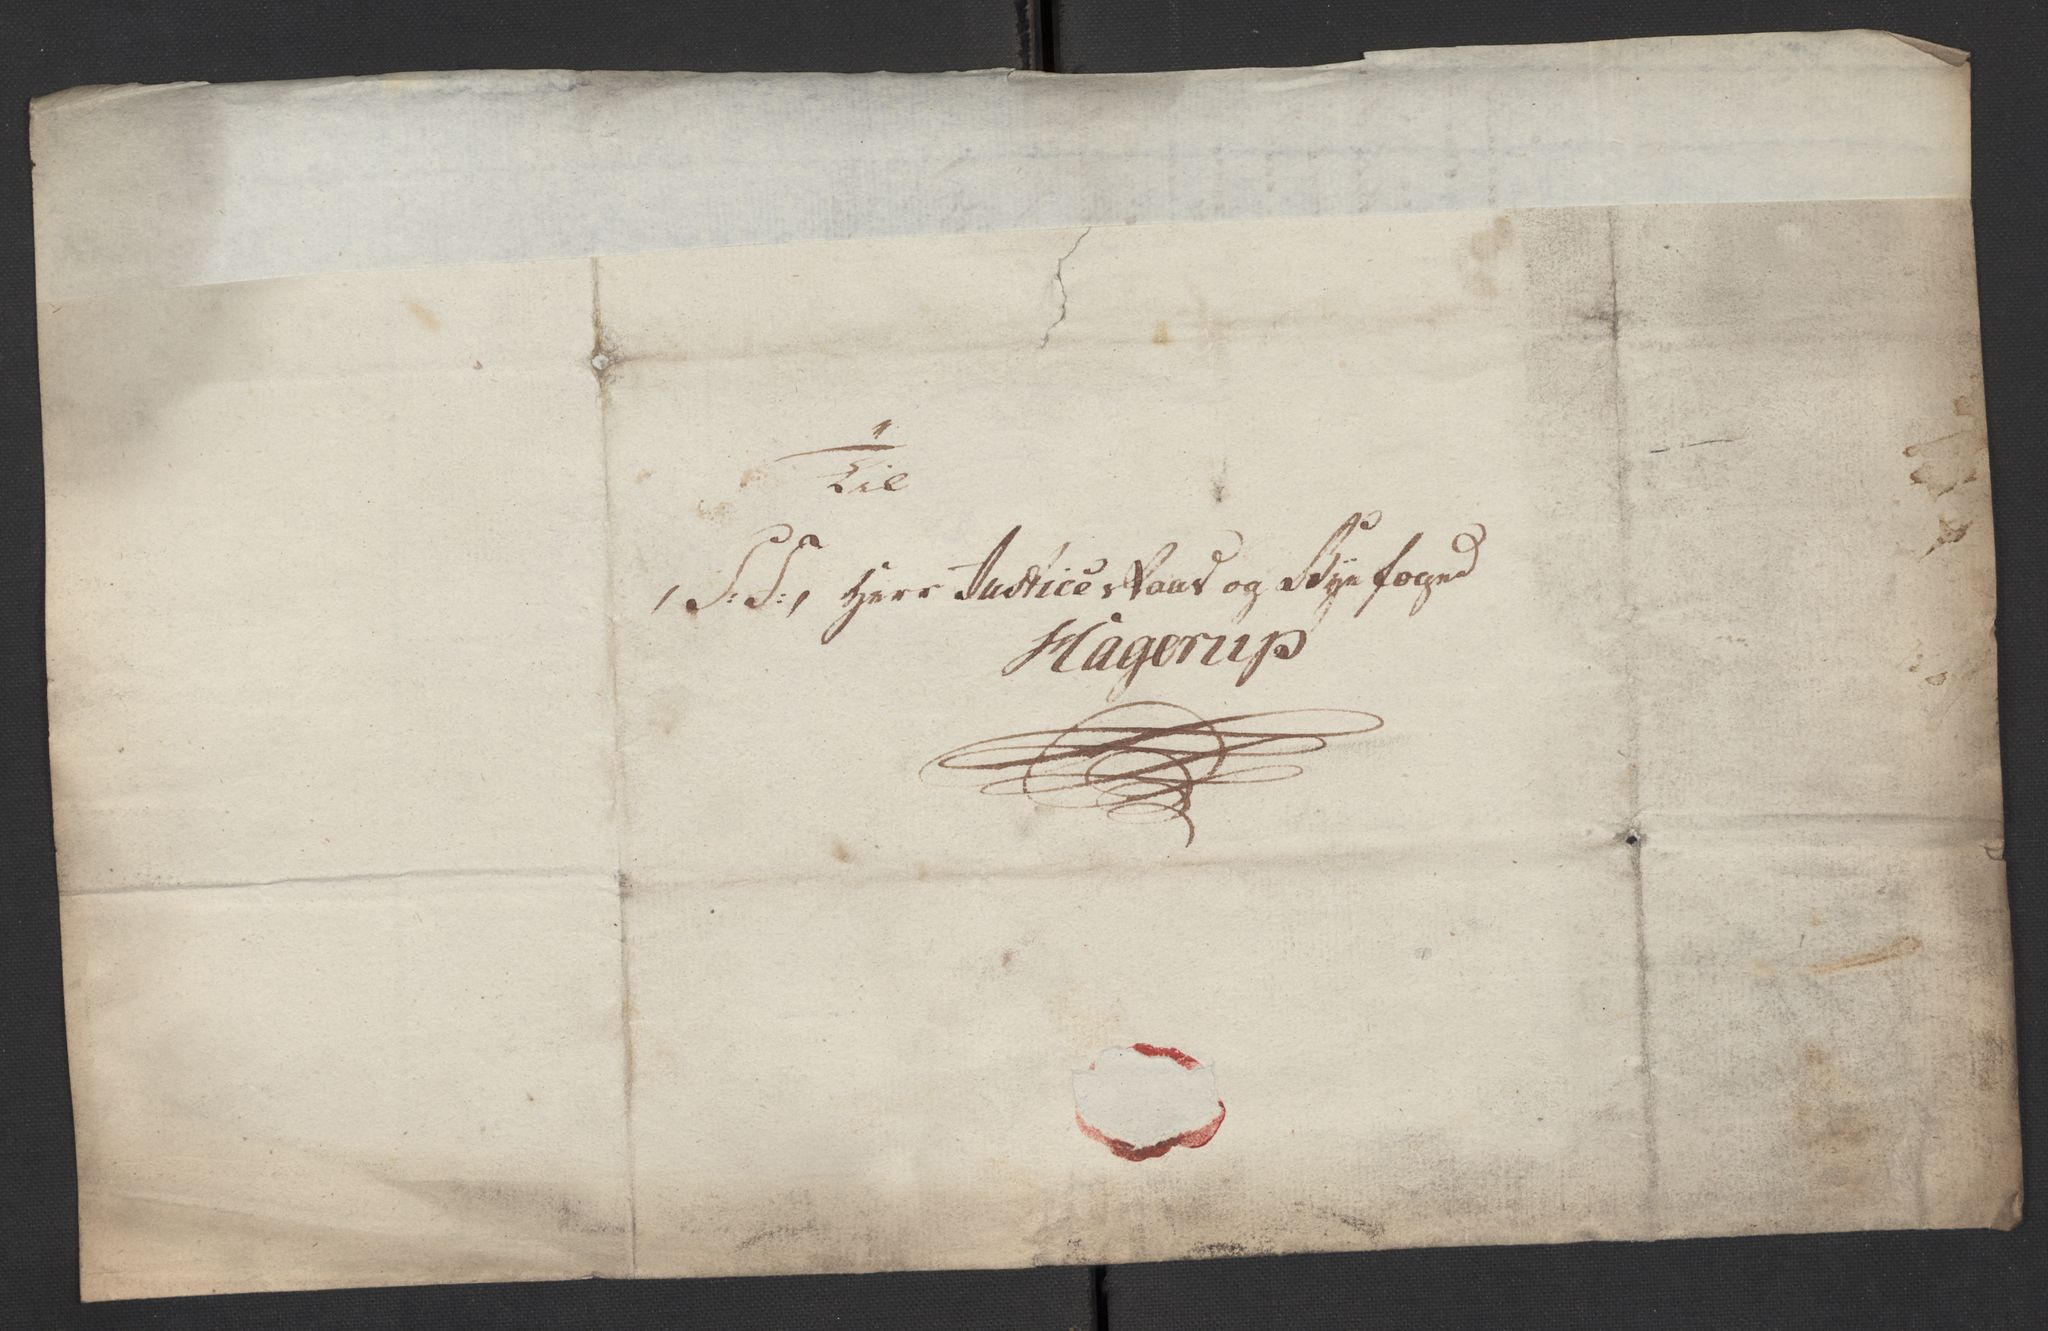 Til
/S: T:/ Herr Justice Raad og Bÿe foged
Hagerup